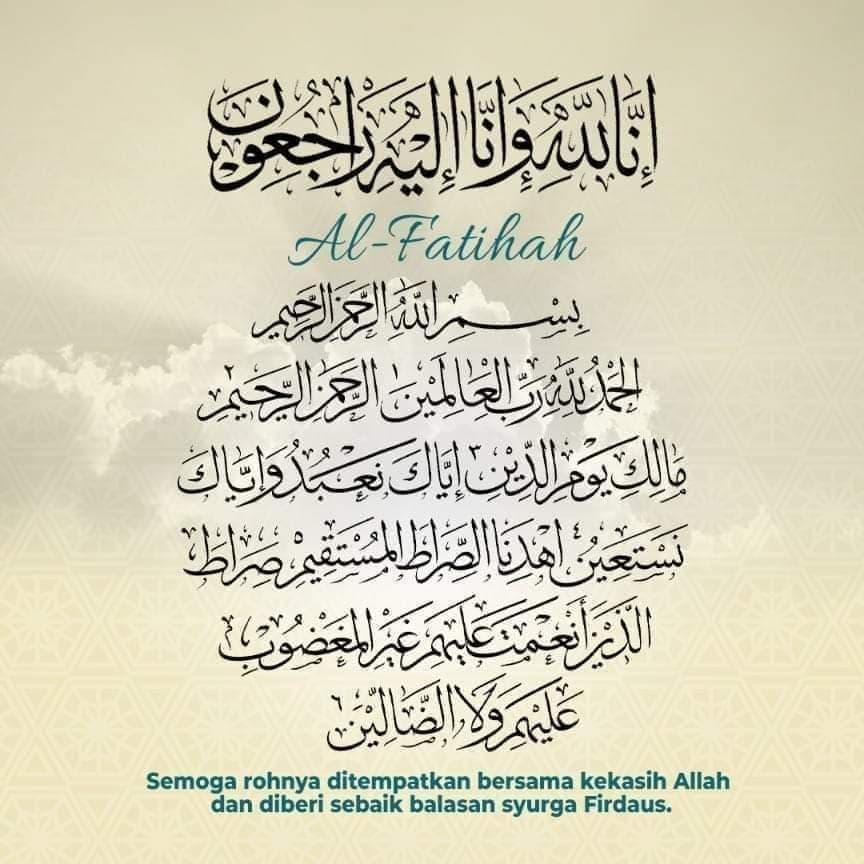 إِنَّا لِلَّهِ وَإِنَّا إِلَيْهِ رَاجِعُونَ
Al-Fatihah
بِسْمِ اللَّهِ الرَّحْمَنِ الرَّحِيمِ
الْحَمْدُ لِلَّهِ رَبِّ الْعَالَمِينَ ١ الرَّحْمَنِ الرَّحِيمِ ٢
مَالِكِ يَوْمِ الدِّينِ ٣ إِيَّاكَ نَعْبُدُ وَإِيَّاكَ
نَسْتَعِينُ ٤ اهْدِنَا الصِّرَاطَ الْمُسْتَقِيمَ ٥ صِرَاطَ
الَّذِينَ أَنْعَمْتَ عَلَيْهِمْ غَيْرِ الْمَغْضُوبِ
عَلَيْهِمْ وَلَا الضَّالِّينَ ٦
Semoga rohnya ditempatkan bersama kekasih Allah
dan diberi sebaik balasan syurga Firdaus.